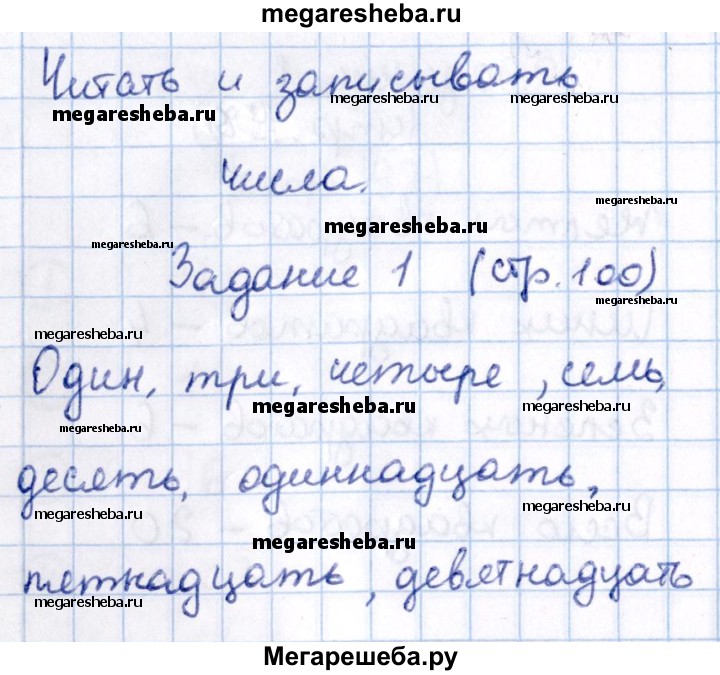 megaresheba.ru
Читать и записывать
megaresheba.ru megaresheba.ru megaresheba.ru
числа.
megaresheba.ru
megaresheba.ru
megaresheba.ru
Задание 1 (стр. 100)
megaresheba.ru
megaresheba.ru
Один, три, четыре, семь,
megaresheba.ru megaresheba.ru
megaresheba.ru
десять, одиннадцать,
megaresheba.ru megaresheba.ru
megaresheba.ru
пятнадцать, девятнадцать
megaresheba.ru megaresheba.ru
Мегарешеба.ру